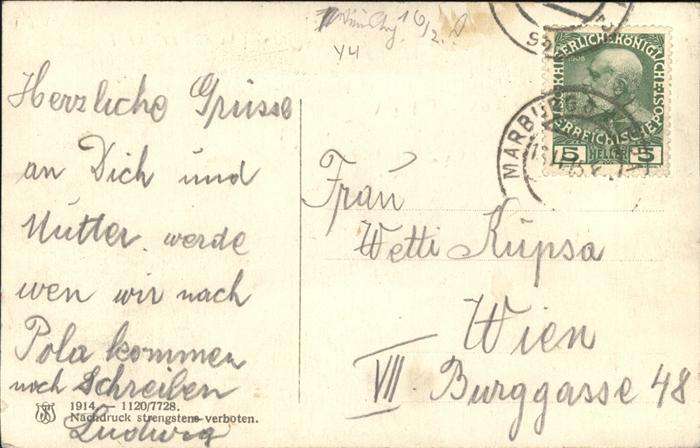 16/2.
Y4
Herzliche Grüsse
an Dich und
Mutter. werde
wen wir nach
Pola kommen
noch Schreiben
Ludwig
1914. — 1120/7728.
Nachdruck strengstens verboten.
KAISERLICHE KÖNIGLICHE
1908
ÖSTERREICHISCHE POST
5 HELLER 5
MARBURG
Frau
Wetti Kupsa
Wien
VII Burggasse 48